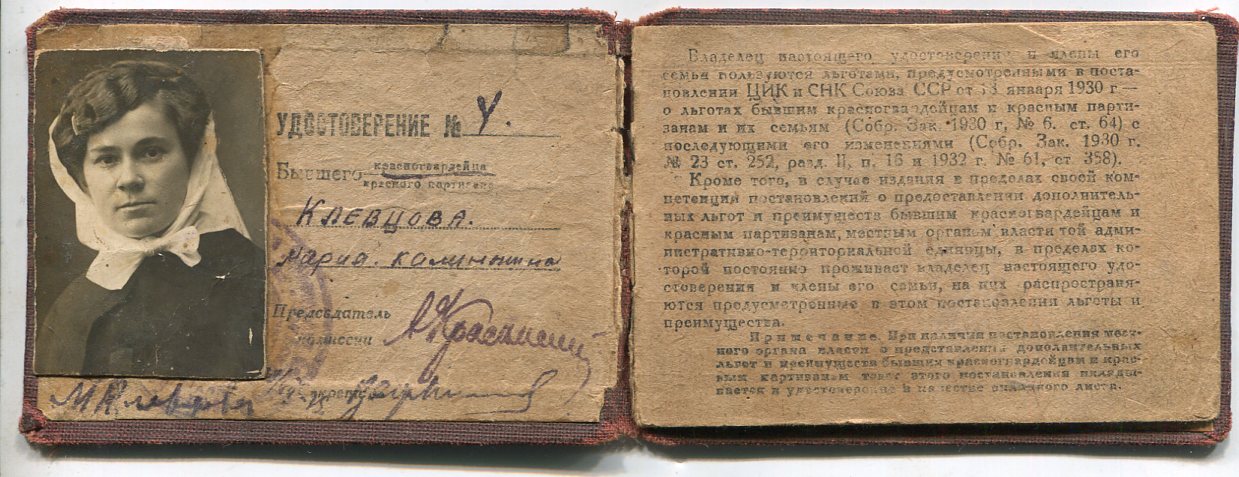 УДОСТОВЕРЕНИЕ № У.
Бывшего красногвардейца
красного партизана
КЛЕВЦОВА.
Мария. Калиновна
Председатель
комиссии
Владелец настоящего удостоверения и члены его
семьи пользуются льготами, предусмотренными в поста-
новлении ЦИК и СНК Союза ССР от 13 января 1930 г.—
о льготах бывшим красногвардейцам и красным парти-
занам и их семьям (Собр. Зак. 1930 г, № 6. ст. 64) с
последующими его изменениями (Собр. Зак. 1930 г.
№ 23 ст. 252, разд. II, п. 16 и 1932 г. № 61, ст. 358).
Кроме того, в случае издания в пределах своей ком-
петенции постановлений о предоставлении дополнитель-
ных льгот и преимуществ бывшим красногвардейцам и
красным партизанам, местным органом власти той адми-
нистративно-территориальной единицы, в пределах ко-
торой постоянно проживает владелец настоящего удо-
стоверения и члены его семьи, на них распространя-
ются предусмотренные в этом постановлении льготы и
преимущества.
Примечание. При наличии постановления мест-
ного органа власти о представлении дополнительных
льгот и преимуществ бывшим красногвардейцам и крас-
ным партизанам текст этого постановления вклады-
вается в удостоверение в качестве вкладного листа.